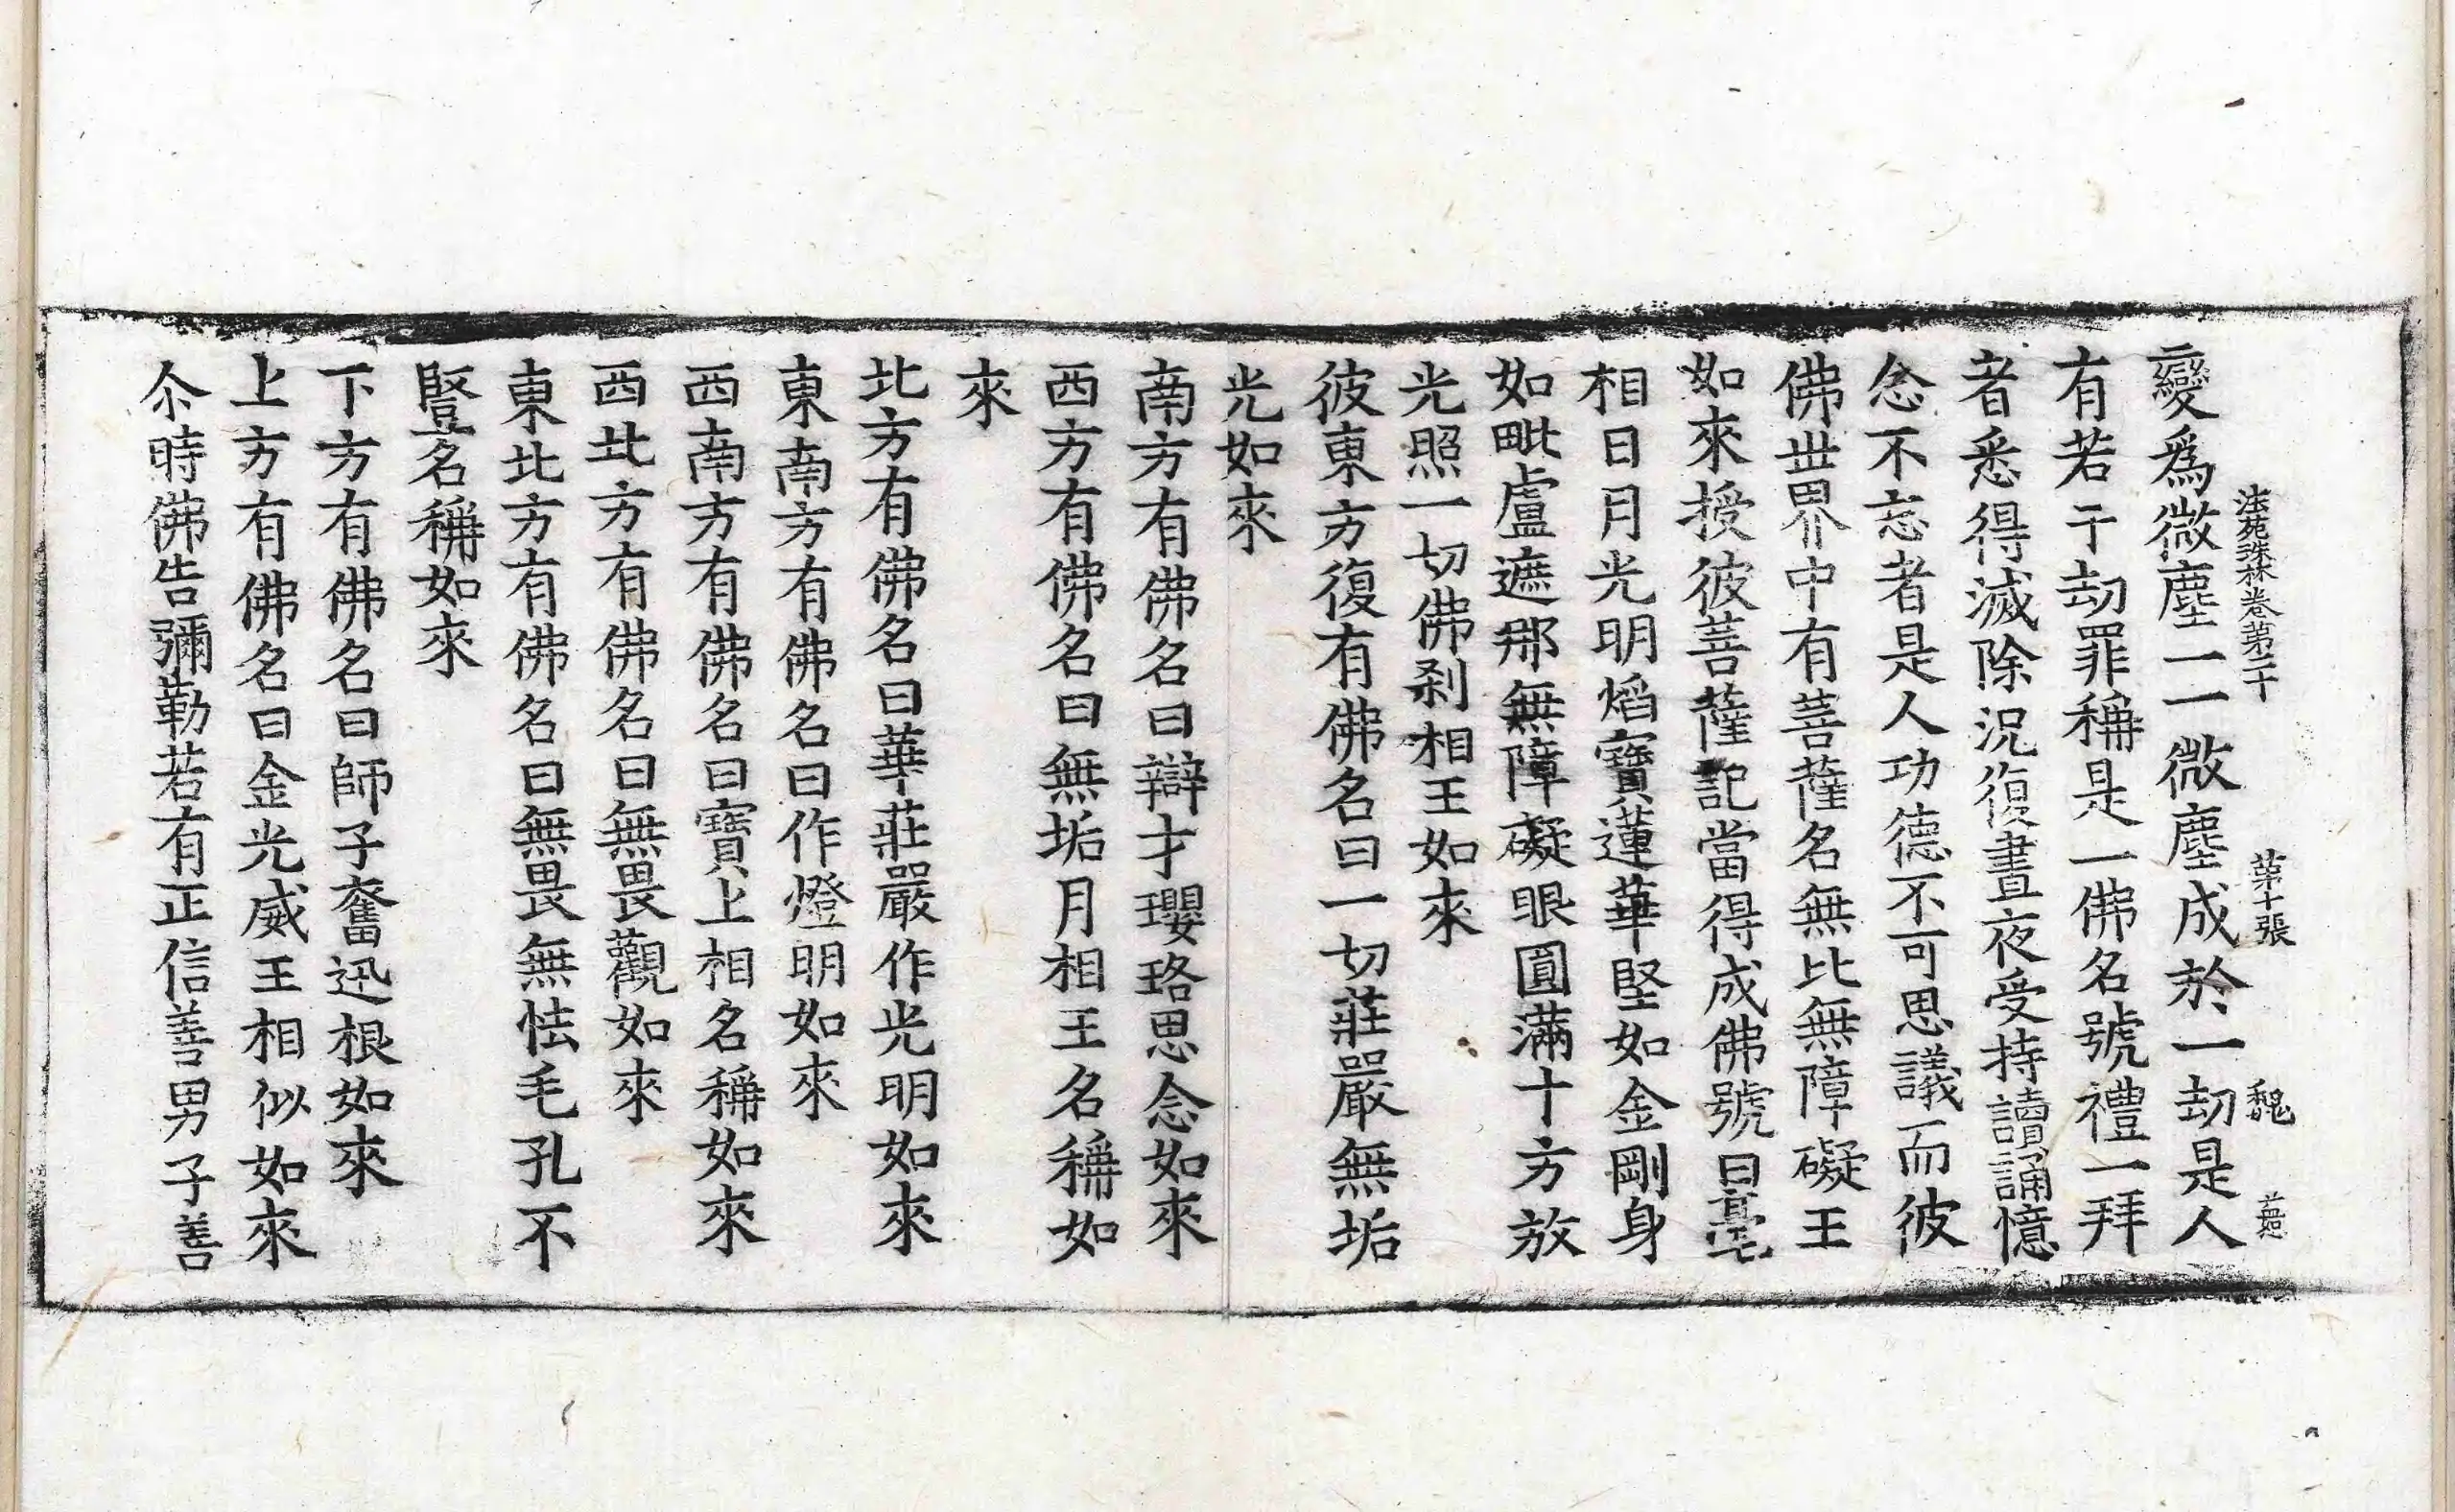 變爲微塵一一微塵成於一劫是人
法苑珠林卷第二十 第十張 魏
有若干劫罪稱是一佛名號禮一拜
者悉得滅除況復晝夜受持讀誦憶
念不忘者是人功德不可思議而彼
佛世界中有菩薩名無比無障礙王
如來授彼菩薩記當得成佛號曰毫
相日月光明熖寶蓮華堅如金剛身
如毗盧遮那無障礙眼圓滿十方放
光照一切佛刹相王如來
彼東方復有佛名曰一切莊嚴無垢
光如來
南方有佛名曰辯才瓔珞思念如來
西方有佛名曰無垢月相王名稱如
來
北方有佛名曰華莊嚴作光明如來
東南方有佛名曰作燈明如來
西南方有佛名曰寶上相名稱如來
西北方有佛名曰無畏觀如來
東北方有佛名曰無畏無怯毛孔不
竪名稱如來
下方有佛名曰師子奮迅根如來
上方有佛名曰金光威王相似如來
尒時佛告彌勒若有正信善男子善